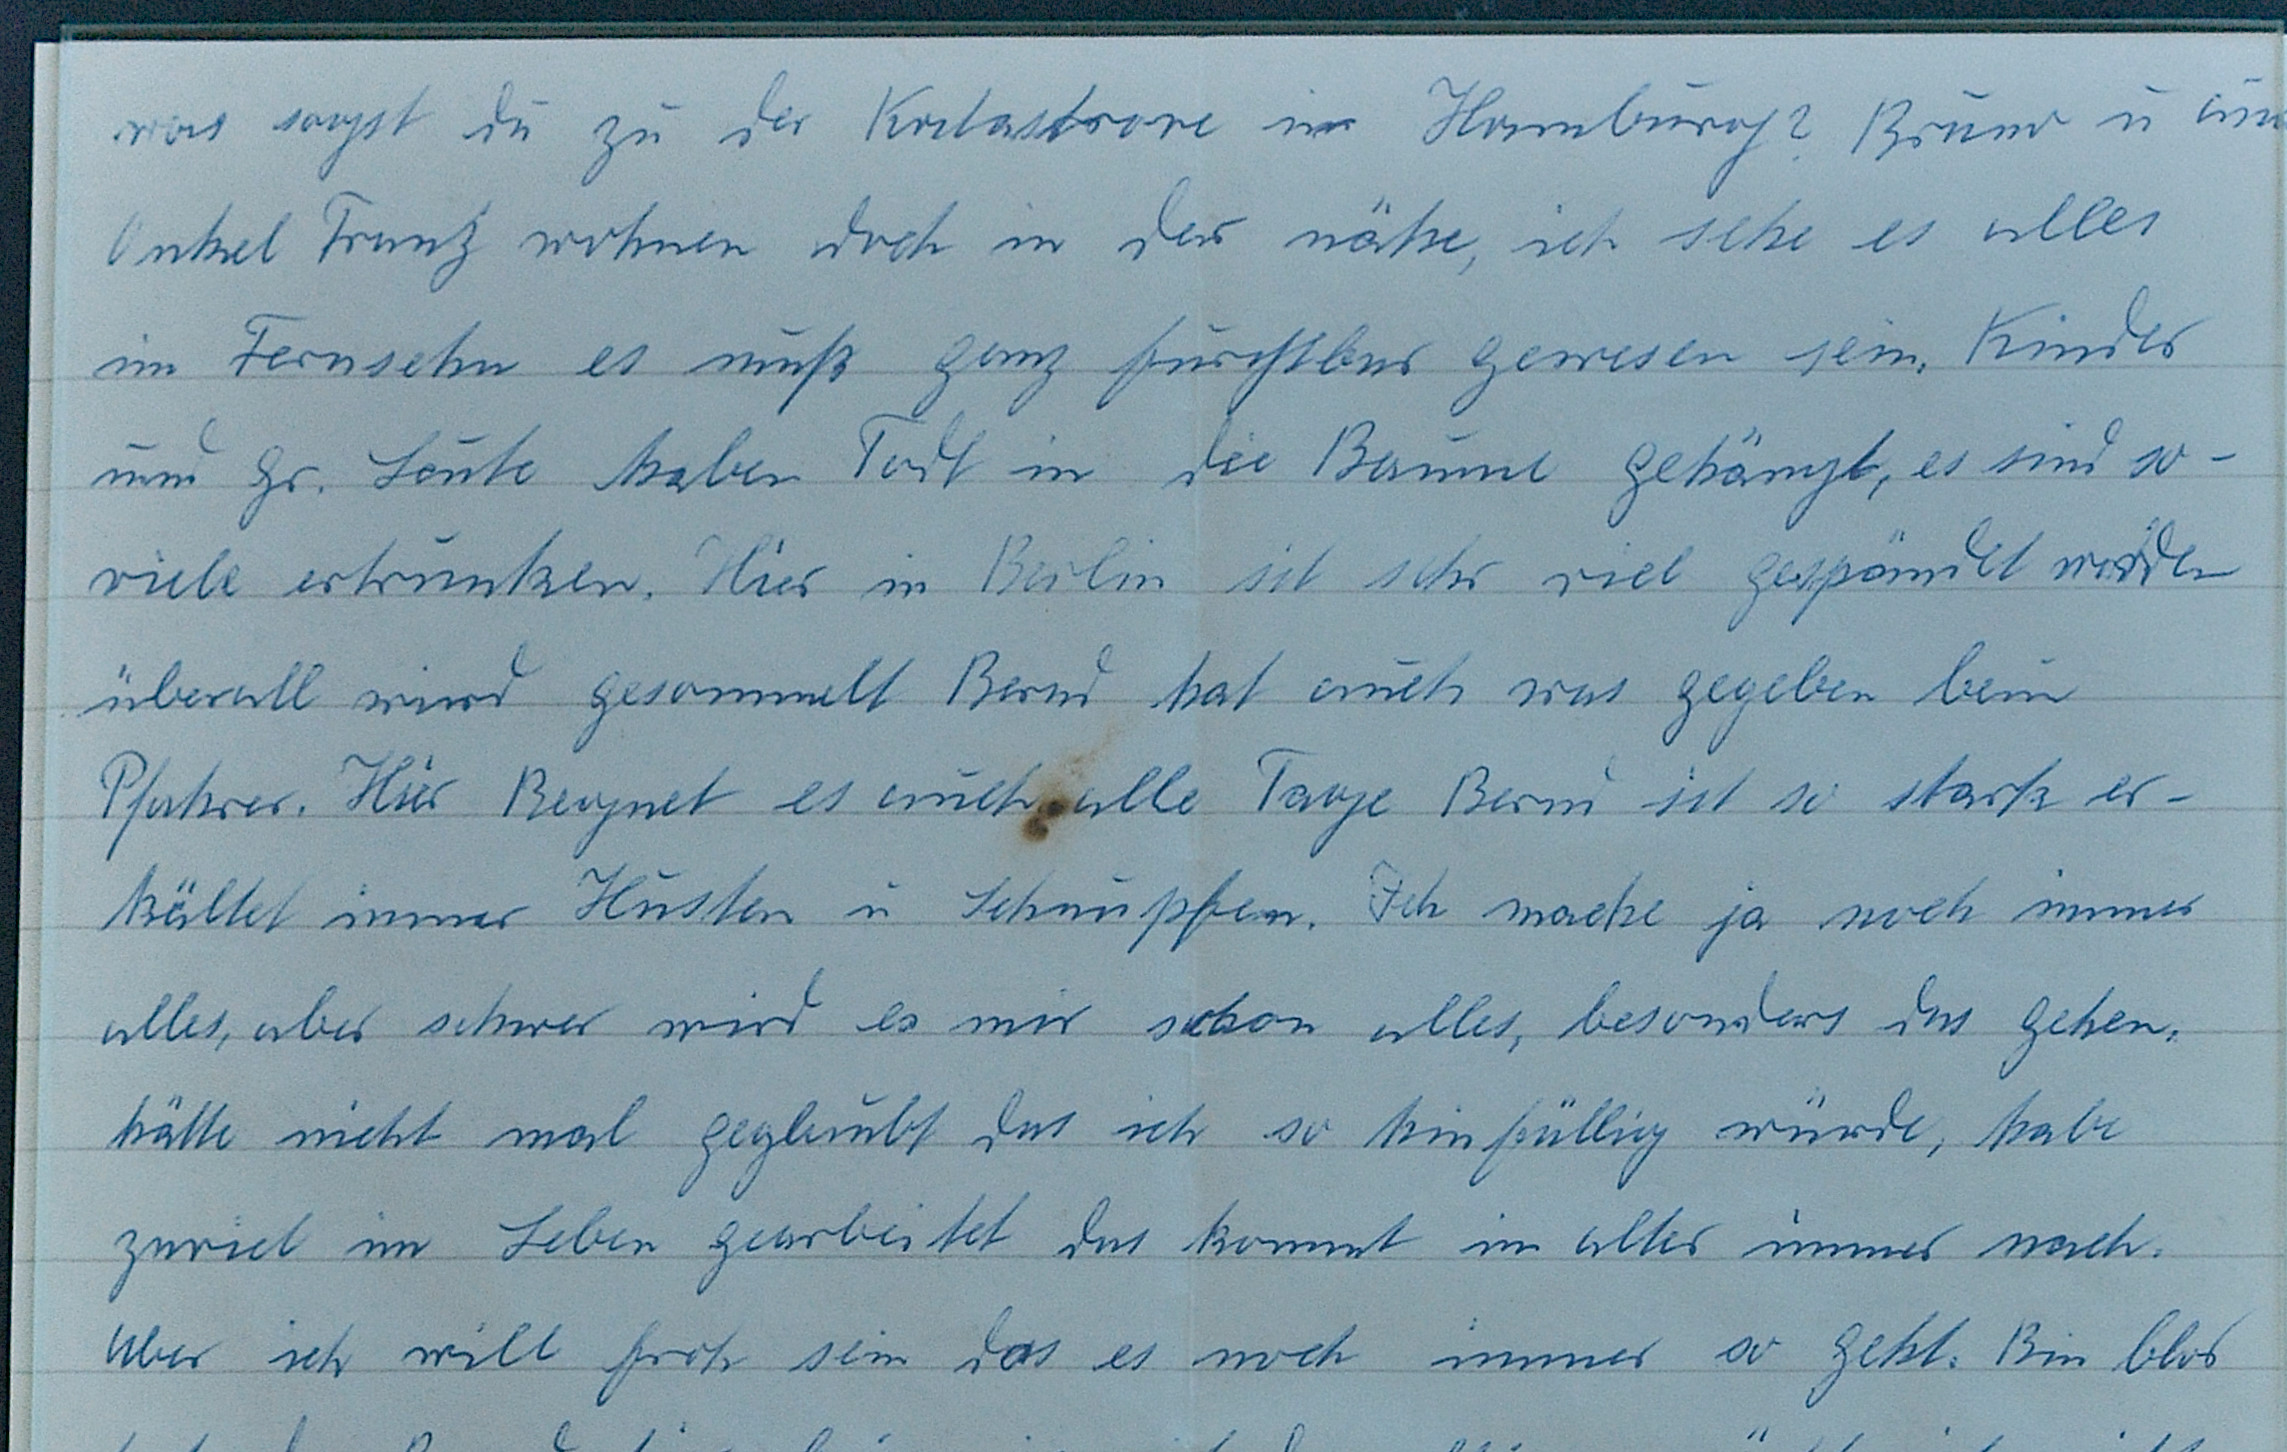 was sagst du zu der Katastrove in Hamburg? Bruno u
Onkel Franz wohnen doch in der nähe, ich sehe es alles
im Fernsehn es muß ganz furchtbar gewesen sein. Kinder
und gr. Leute haben Todt in die Bäume gehängt, es sind so-
viele ertrunken. Hier in Berlin ist sehr viel gespändet worden
überall wird gesammelt Bernd hat auch was gegeben beim
Pfahrer. Hier Regnet es auch alle Tage Bernd ist so stark er-
kältet immer Husten u Schnupfen. Ich mache ja noch immer
alles, aber schwer wird es mir schon alles, besonders das gehen.
hätte nicht mal geglaubt das ich so hinfällig würde, habe
zuviel im Leben gearbeitet das kommt im alter immer nach.
Aber ich will froh sein das es noch immer so geht. Bin blos